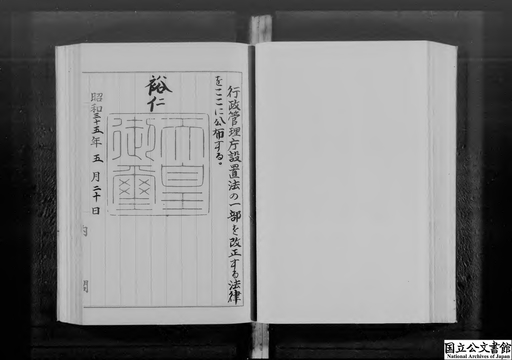 行政管理庁設置法の一部を改正する法律
をここに公布する。
裕仁
天皇
御璽
昭和三十五年五月二十日
国立公文書館
National Archives of Japan